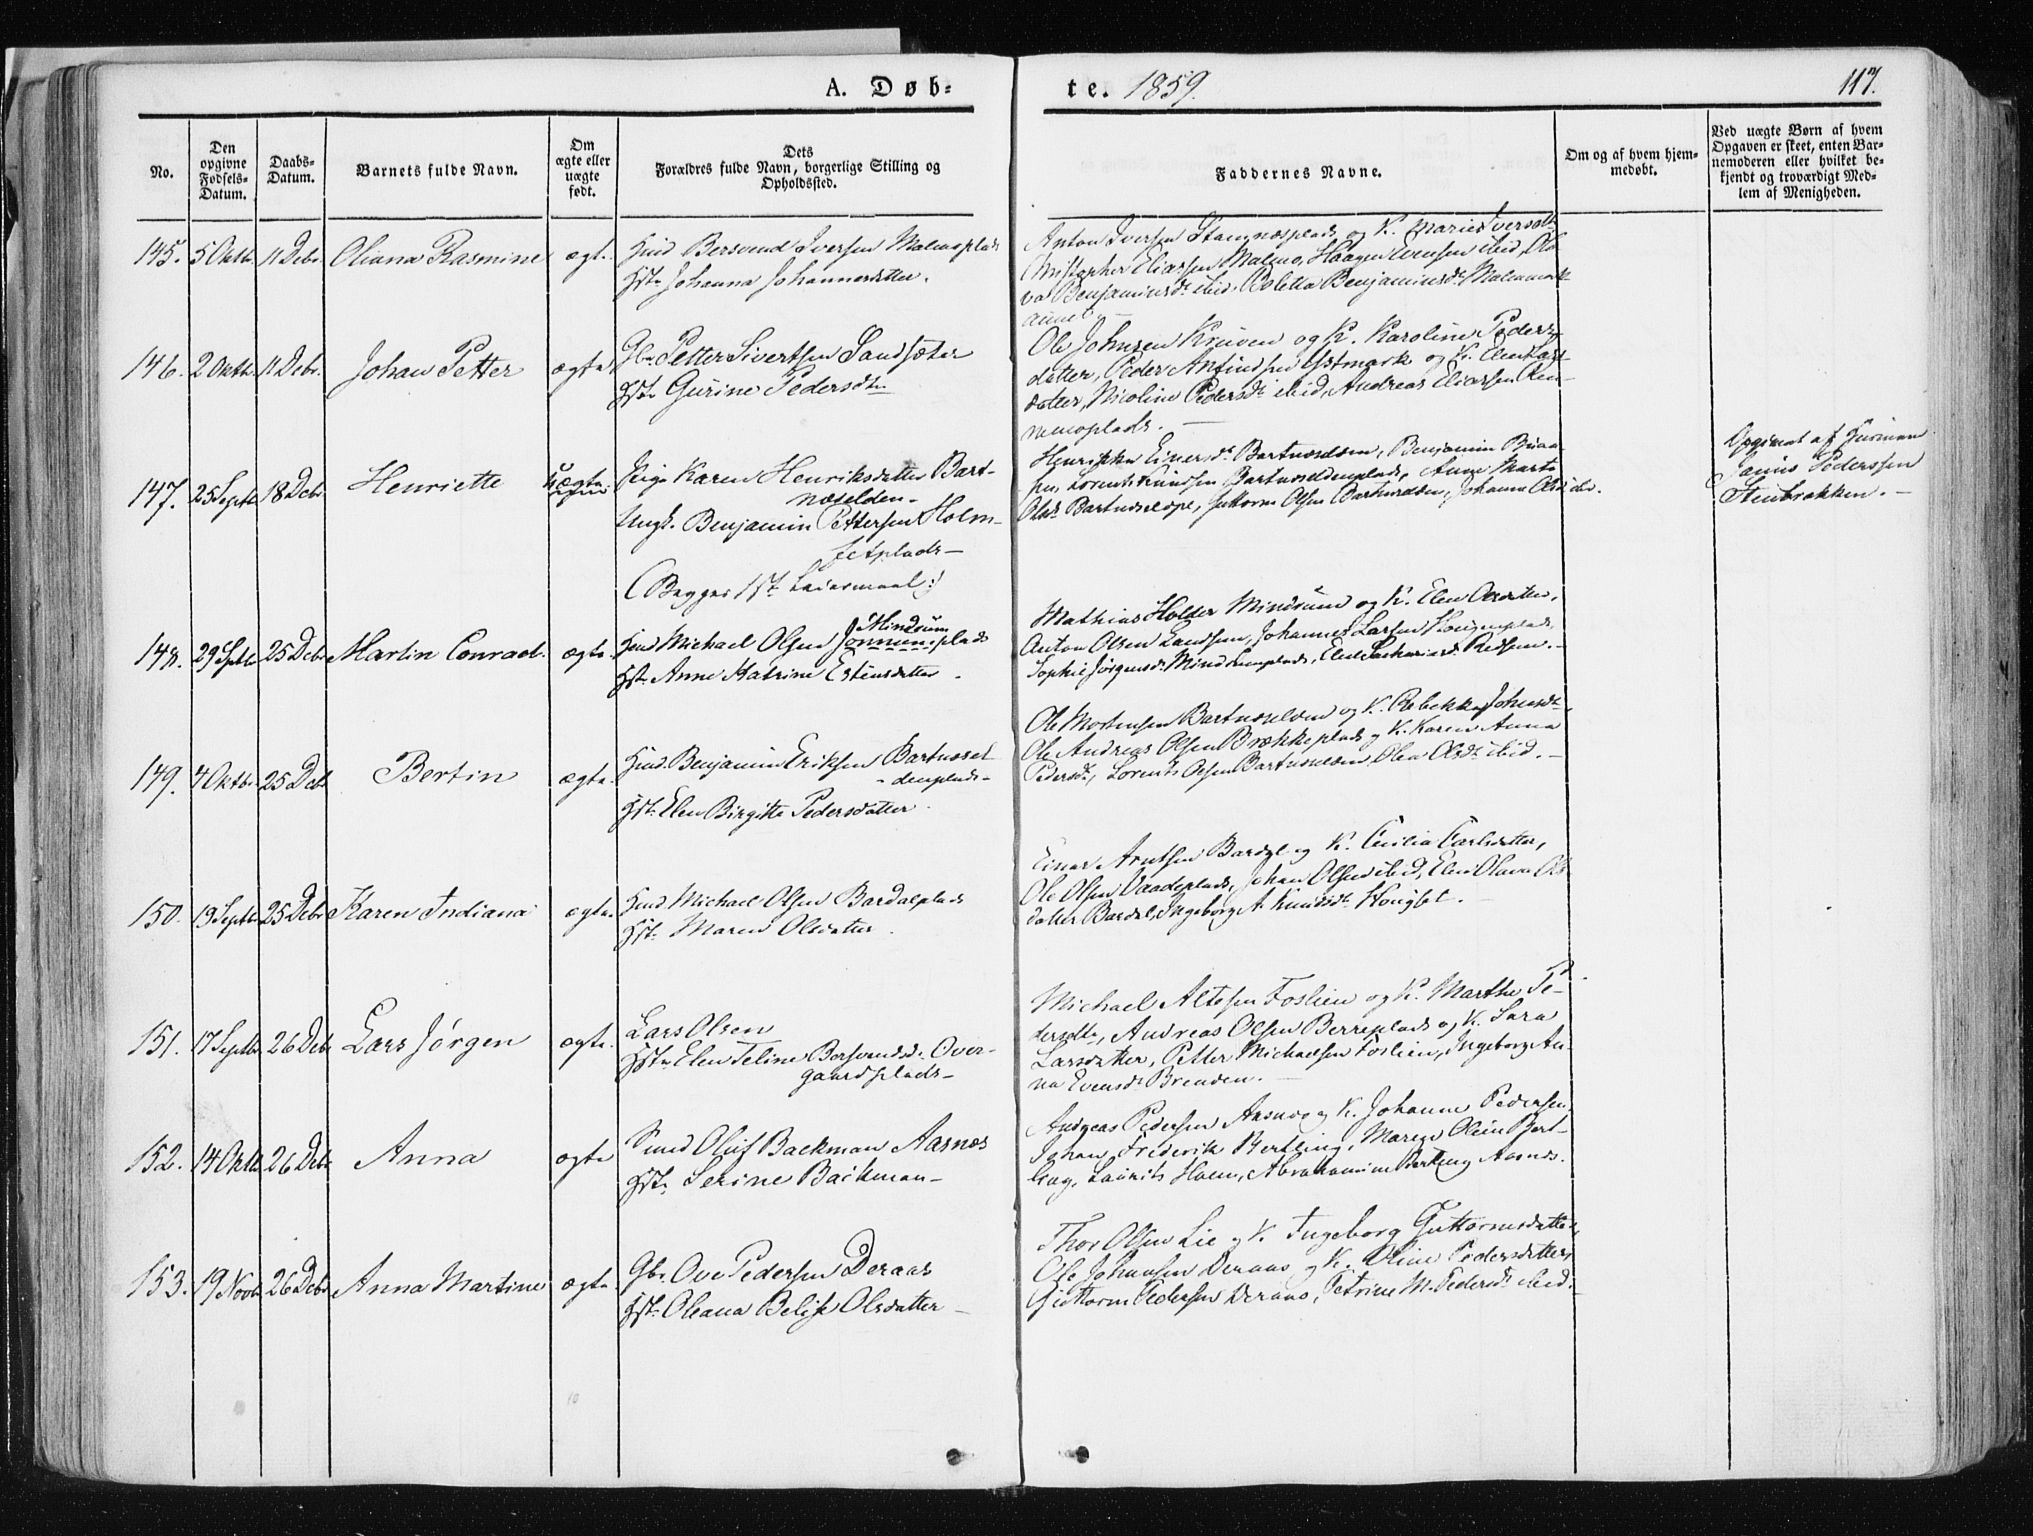 A. Døb-
te. 1859.
117.
No.
Den opgivne Fødsels-Datum.
Daabs-Datum.
Barnets fulde Navn.
Om ægte eller uægte født.
Dets
Forældres fulde Navn, borgerlige Stilling og
Opholdssted.
Faddernes Navne.
Om og af hvem hjem-
medøbt.
Ved uægte Børn af hvem
Opgaven er skeet, enten Bar-
nemoderen eller hvilket be-
kjendt og troværdigt Med-
lem af Menigheden.
145. 5 Oktb. 11 Debr. Oliana Rasmine ægte. Huusm. Bersvend Iversen Malmoplads
Hst. Johanna Johannesdatter.
Anton Iversen Stamnæsplads og K. Marie Iversdtr
Christopher Eliassen Malmo, Haagen Evensen ibid,
Benjaminsdtr ibid, Boletta Benjaminsdtr
146. 2 Oktb. 11 Debr. Johan Petter ægte Gbr. Petter Sivertsen Sandsæter
Hst. Gurine Pedersdtr
Ole Johnsen Kruven og K. Karoline Peders-
datter, Peder Anfindsen Ystmark og K. Elen Lars-
datter, Nicoline Pedersdtr ibid, Andreas Eliassen Ren-
nemoplads.
147. 25 Septb. 18 Debr. Henriette uægte Pige Karen Henriksdatter Bart-
næselden.
Ungk. Benjamin Pettersen Holm-
setplads
(Begges 1ste Leiermaal)
Henrikka Einersdtr Bartnæselden, Benjamin
Lorents Knudsen Bartnæseldenplads, Anne Marta
Olsdr Bartnæs, Guttorm Olsen Bartnæselden, Johanna Olsdr ibid.
Opgivet af Huusmand
Janus Pederssen
Steinbrækken.
148. 29 Septb. 25 Debr. Martin Conrad. ægte. Huusm Michael Olsen Mindrumsplads
Hst. Anne Katrine Estensdatter.
Mathias Holder Mindrum og K. Elen Olsdatter,
Anton Olsen, Johannes Larsen
Sophie Jørgensdr Mindrumplads, Elen Zachariasdr
149. 4 Oktb. 25 Debr Bertin ægte. Huusm. Benjamin Eriksen Bartnæsel-
denplads
Hst. Elen Birgitte Pedersdatter.
Ole Mortensen Bartnæselden og K. Rebekka Johnsdtr,
Ole Andreas Olsen Brækkeplads og K. Karen Anna
Pedersdtr, Lorents Olsen Bartnæselden, Olea Olsdr ibid.
150. 19 Septb. 25 Debr Karen Indiana ægte. Huusm Michael Olsen Bardalplads
Hst. Maren Olsdatter.
Einar Arntsen Bardal og K. Cecilia Carlsdatter,
Ole Olsen Vaadeplads, Johan Olsen ibid, Elen Olava Ols-
datter Bardal, Ingeborg A. Knudsdtr
151. 17 Septb. 26 Debr Lars Jørgen ægte. Lars Olsen
Hst. Elen Teline Bersvendsdr. Over-
gaardsplads
Michael Altesen Foslien og K. Martha Pe-
dersdtr, Andreas Olsen Berreplads og K. Sara
Larsdatter, Petter Michaelsen Foslien, Ingeborg An-
na Evensdr Brenden.
152. 14 Oktb 26 Debr Anna ægte Oluf Backman Aasnæs
Hst. Serine Backman
Andreas Pedersen Aasnæs og K. Johanne Pedersen,
Johan Frederik Bertling, Maren Oline Bert-
ling, Laurits Holm, Abrahamine Bertling Aasnæs.
153. 19 Novb. 26 Debr Anna Martine ægte. Gbr. Ove Pedersen Deraas
Hst. Oleana Belise Olsdatter
Thor Olsen Lie og K. Ingeborg Guttormsdatter,
Ole Johansen Deraas og K. Oline Pedersdatter,
Guttorm Pedersen Deraas, Petrine M. Pedersdr ibid.